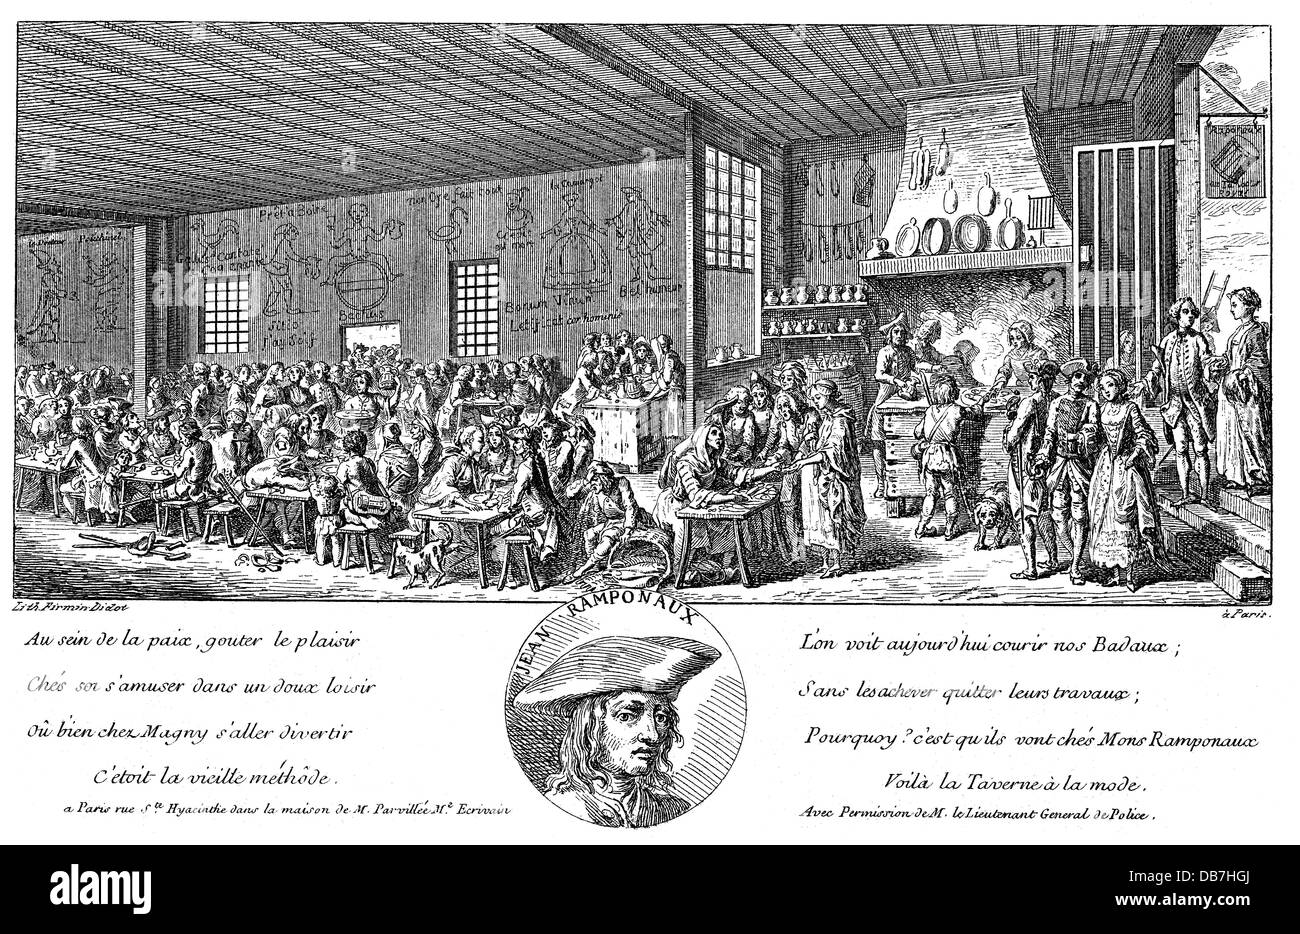 Polichinel
Prêt a Boire
mon Oye fait tout
la Camargot
Bonum Vinum
Belhumeur
Letificat cor hominis
Bacchus
Lith. Firmin-Didot
à Paris.
JEAN RAMPONAUX
Au sein de la paix, gouter le plaisir
Chés soi s'amuser dans un doux loisir
Où bien chez Magny s'aller divertir
C'étoit la vieille méthôde.
a Paris rue Ste. Hyacinthe dans la maison de M. Parvillée Me. Ecrivain
L'on voit aujourd'hui courir nos Badaux;
Sans les achever quitter leurs travaux;
Pourquoy? c'est qu'ils vont chés Mons Ramponaux
Voilà la Taverne à la mode.
Avec Permission de M. le Lieutenant General de Police.
alamy
Image ID: DB7HGJ
www.alamy.com